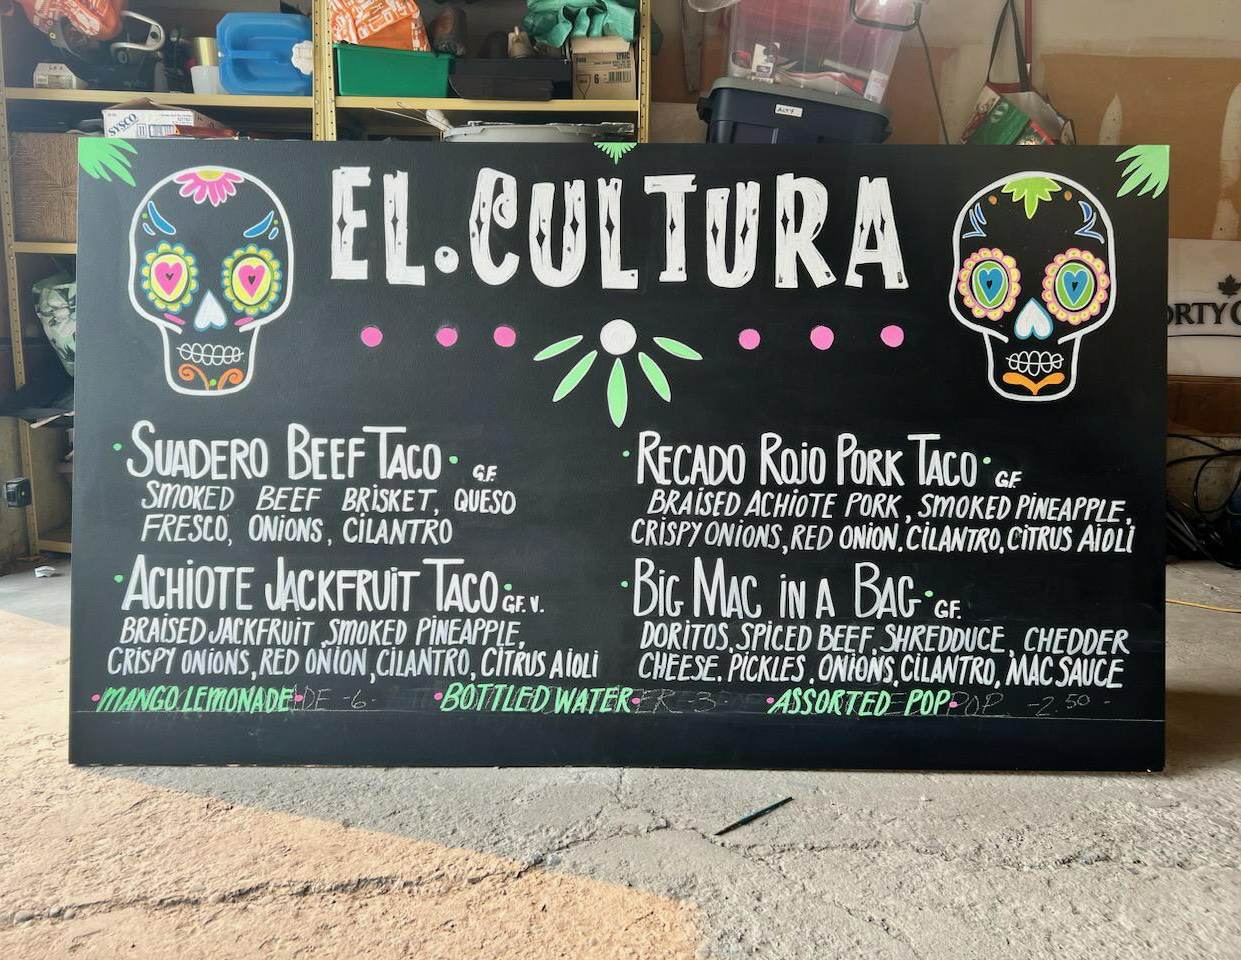 SYSCO
ALTY
EL.CULTURA
ORTY
SUADERO BEEF TACO · G.F.
SMOKED BEEF BRISKET, QUESO
FRESCO, ONIONS, CILANTRO
ACHIOTE JACKFRUIT TACO · G.F. V.
BRAISED JACKFRUIT, SMOKED PINEAPPLE,
CRISPY ONIONS, RED ONION, CILANTRO, CITRUS AIOLI
RECADO ROJO PORK TACO · GF
BRAISED ACHIOTE PORK, SMOKED PINEAPPLE,
CRISPY ONIONS, RED ONION, CILANTRO, CITRUS AIOLI
BIG MAC IN A BAG · GF.
DORITOS, SPICED BEEF, SHREDDUCE, CHEDDER
CHEESE, PICKLES, ONIONS, CILANTRO, MAC SAUCE
•MANGO LEMONADE• DE -6- •BOTTLED WATER• ER -3- •ASSORTED POP• POP -2.50-